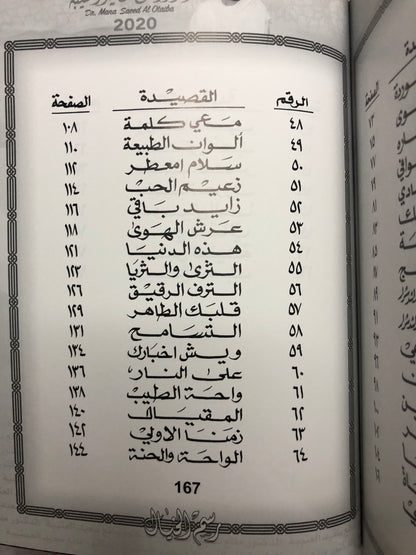 Dr. Mana Saeed Al Otaiba
2020
الرقم القصيدة الصفحة
٤٨ معي كلمة ١٠٨
٤٩ ألوان الطبيعة ١١٠
٥٠ سلام امعطر ١١٢
٥١ زعيم الحب ١١٤
٥٢ زايد باقي ١١٦
٥٣ عرش الهوى ١١٨
٥٤ هذه الدنيا ١٢١
٥٥ الثرى والثريا ١٢٣
٥٦ الترف الرقيق ١٢٦
٥٧ قلبك الطاهر ١٢٩
٥٨ التسامح ١٣١
٥٩ ويش اخبارك ١٣٤
٦٠ على النار ١٣٦
٦١ واحة الطيب ١٣٨
٦٢ المقيال ١٤٠
٦٣ زمنا الاولي ١٤٢
٦٤ الواحة والحنة ١٤٤
167